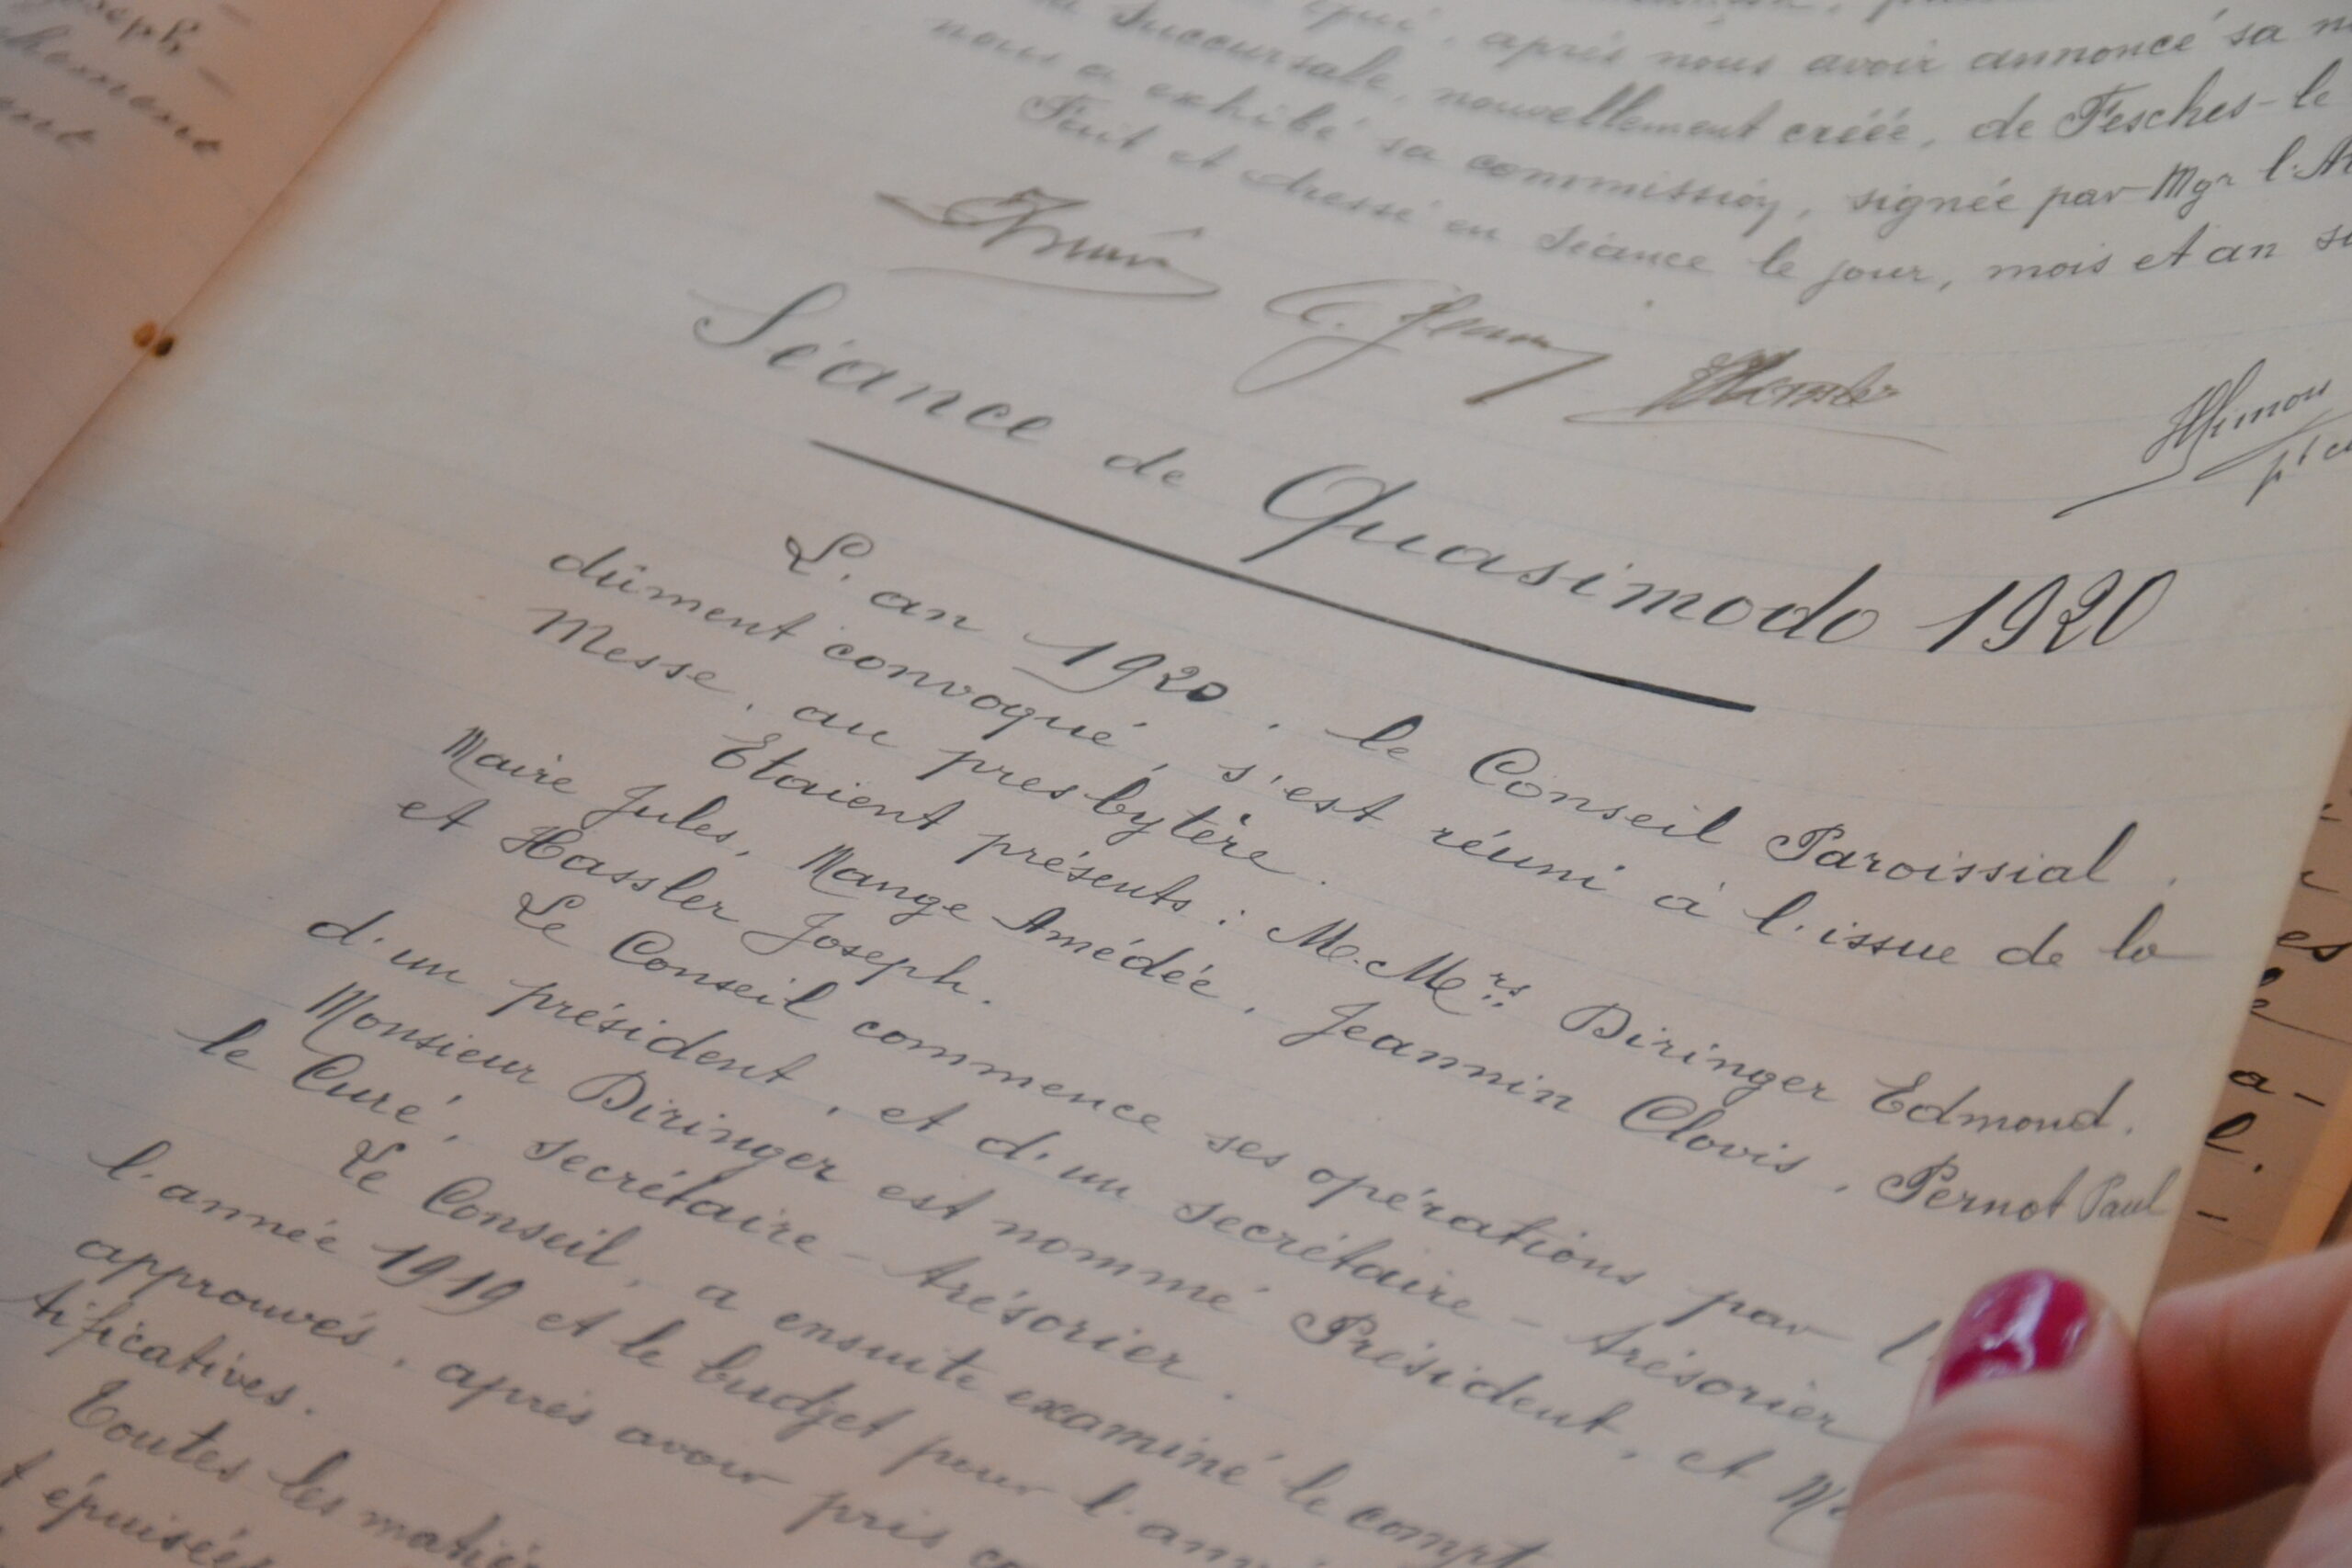 oseph -
après nous avoir annoncé sa
Succursale, nouvellement créée, de Fesches-le
nous a exhibé sa commission, signée par Mgr l'Ar
Fait et dressé en séance le jour, mois et an
HSimon
Séance de Quasimodo 1920
L'an 1920, le Conseil Paroissial,
dûment convoqué, s'est réuni à l'issue de la
Messe, au presbytère.
Etaient présents : M.Mrs Diringer Edmond,
Maire Jules, Mange Amédée, Jeannin Clovis, Pernot Paul
et Hassler Joseph.
Le Conseil commence ses opérations par l'
d'un président, et d'un secrétaire-trésorier
Monsieur Diringer est nommé Président, et M
le Curé, secrétaire-trésorier.
Le Conseil, a ensuite examiné le compt
l'année 1919 et le budget pour l'anné
approuvés, après avoir pris co
tificatives.
Toutes les matiè
t épuisées